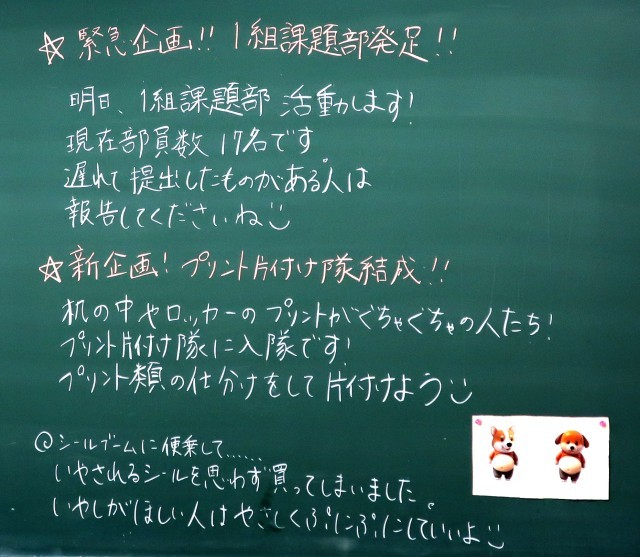 ☆緊急企画!! 1組課題部発足!!
明日、1組課題部 活動します!
現在部員数 17名です。
遅れて提出したものがある人は
報告してくださいね
☆新企画! プリント片付け隊結成!!
机の中やロッカーのプリントがぐちゃぐちゃの人たち!
プリント片付け隊に入隊です!
プリント類の仕分けをして片付けよう
◎シールブームに便乗して……
いやされるシールを思わず買ってしまいました。
いやしがほしい人はやさしくぷにぷにしていいよ